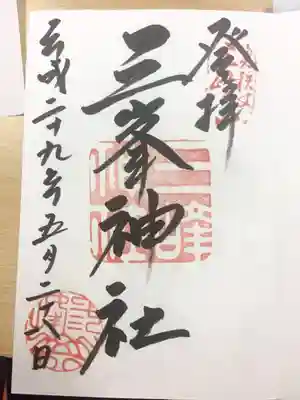 登拝
三峯神社
平成二十九年五月二十八日